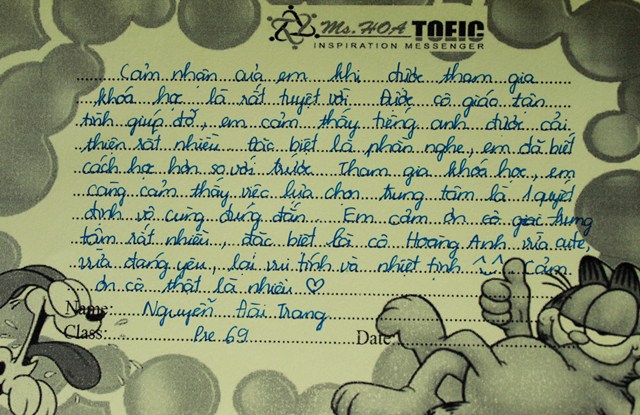 Ms. HOA TOEIC
INSPIRATION MESSENGER
Cảm nhận của em khi được tham gia
khóa học là rất tuyệt vời. Được cô giáo tận
tình giúp đỡ, em cảm thấy tiếng anh được cải
thiện rất nhiều. Đặc biệt là phần nghe, em đã biết
cách học hơn so với trước. Tham gia khóa học, em
càng cảm thấy việc lựa chọn trung tâm là 1 quyết
định vô cùng đúng đắn. Em cảm ơn cô giáo trung
tâm rất nhiều, đặc biệt là cô Hoàng Anh vừa cute,
vừa đáng yêu, lại vui tính và nhiệt tình ^^. Cảm
ơn cô thật là nhiều ♡
Name: Nguyễn Đài Trang
Class: Pre 69 Date: